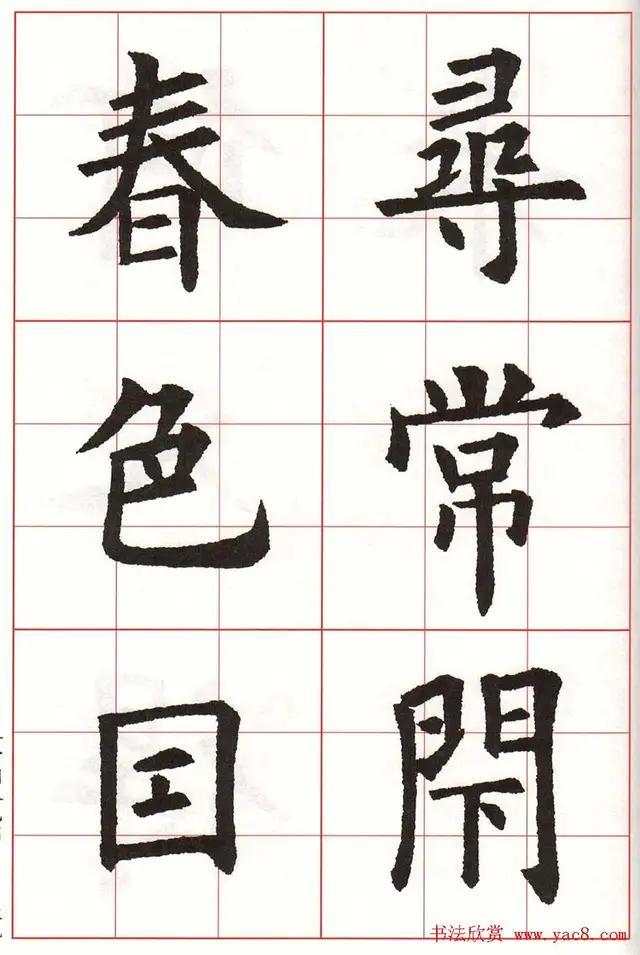 尋常閇
春色囯
书法欣赏 www.yac8.com